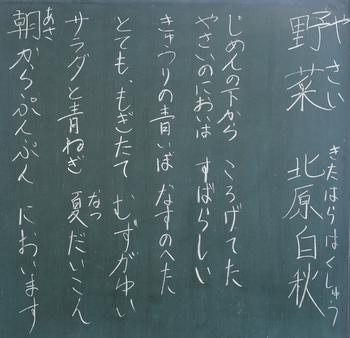 野菜 北原白秋
やさい きたはらはくしゅう
じめんの下から ころげてた
やさいのにおいは すばらしい
きゅうりの青いぼ なすのへた
とても、もぎたて むずがゆい
サラダと青ねぎ 夏だいこん
なつ
朝からぷんぷん においます
あさ